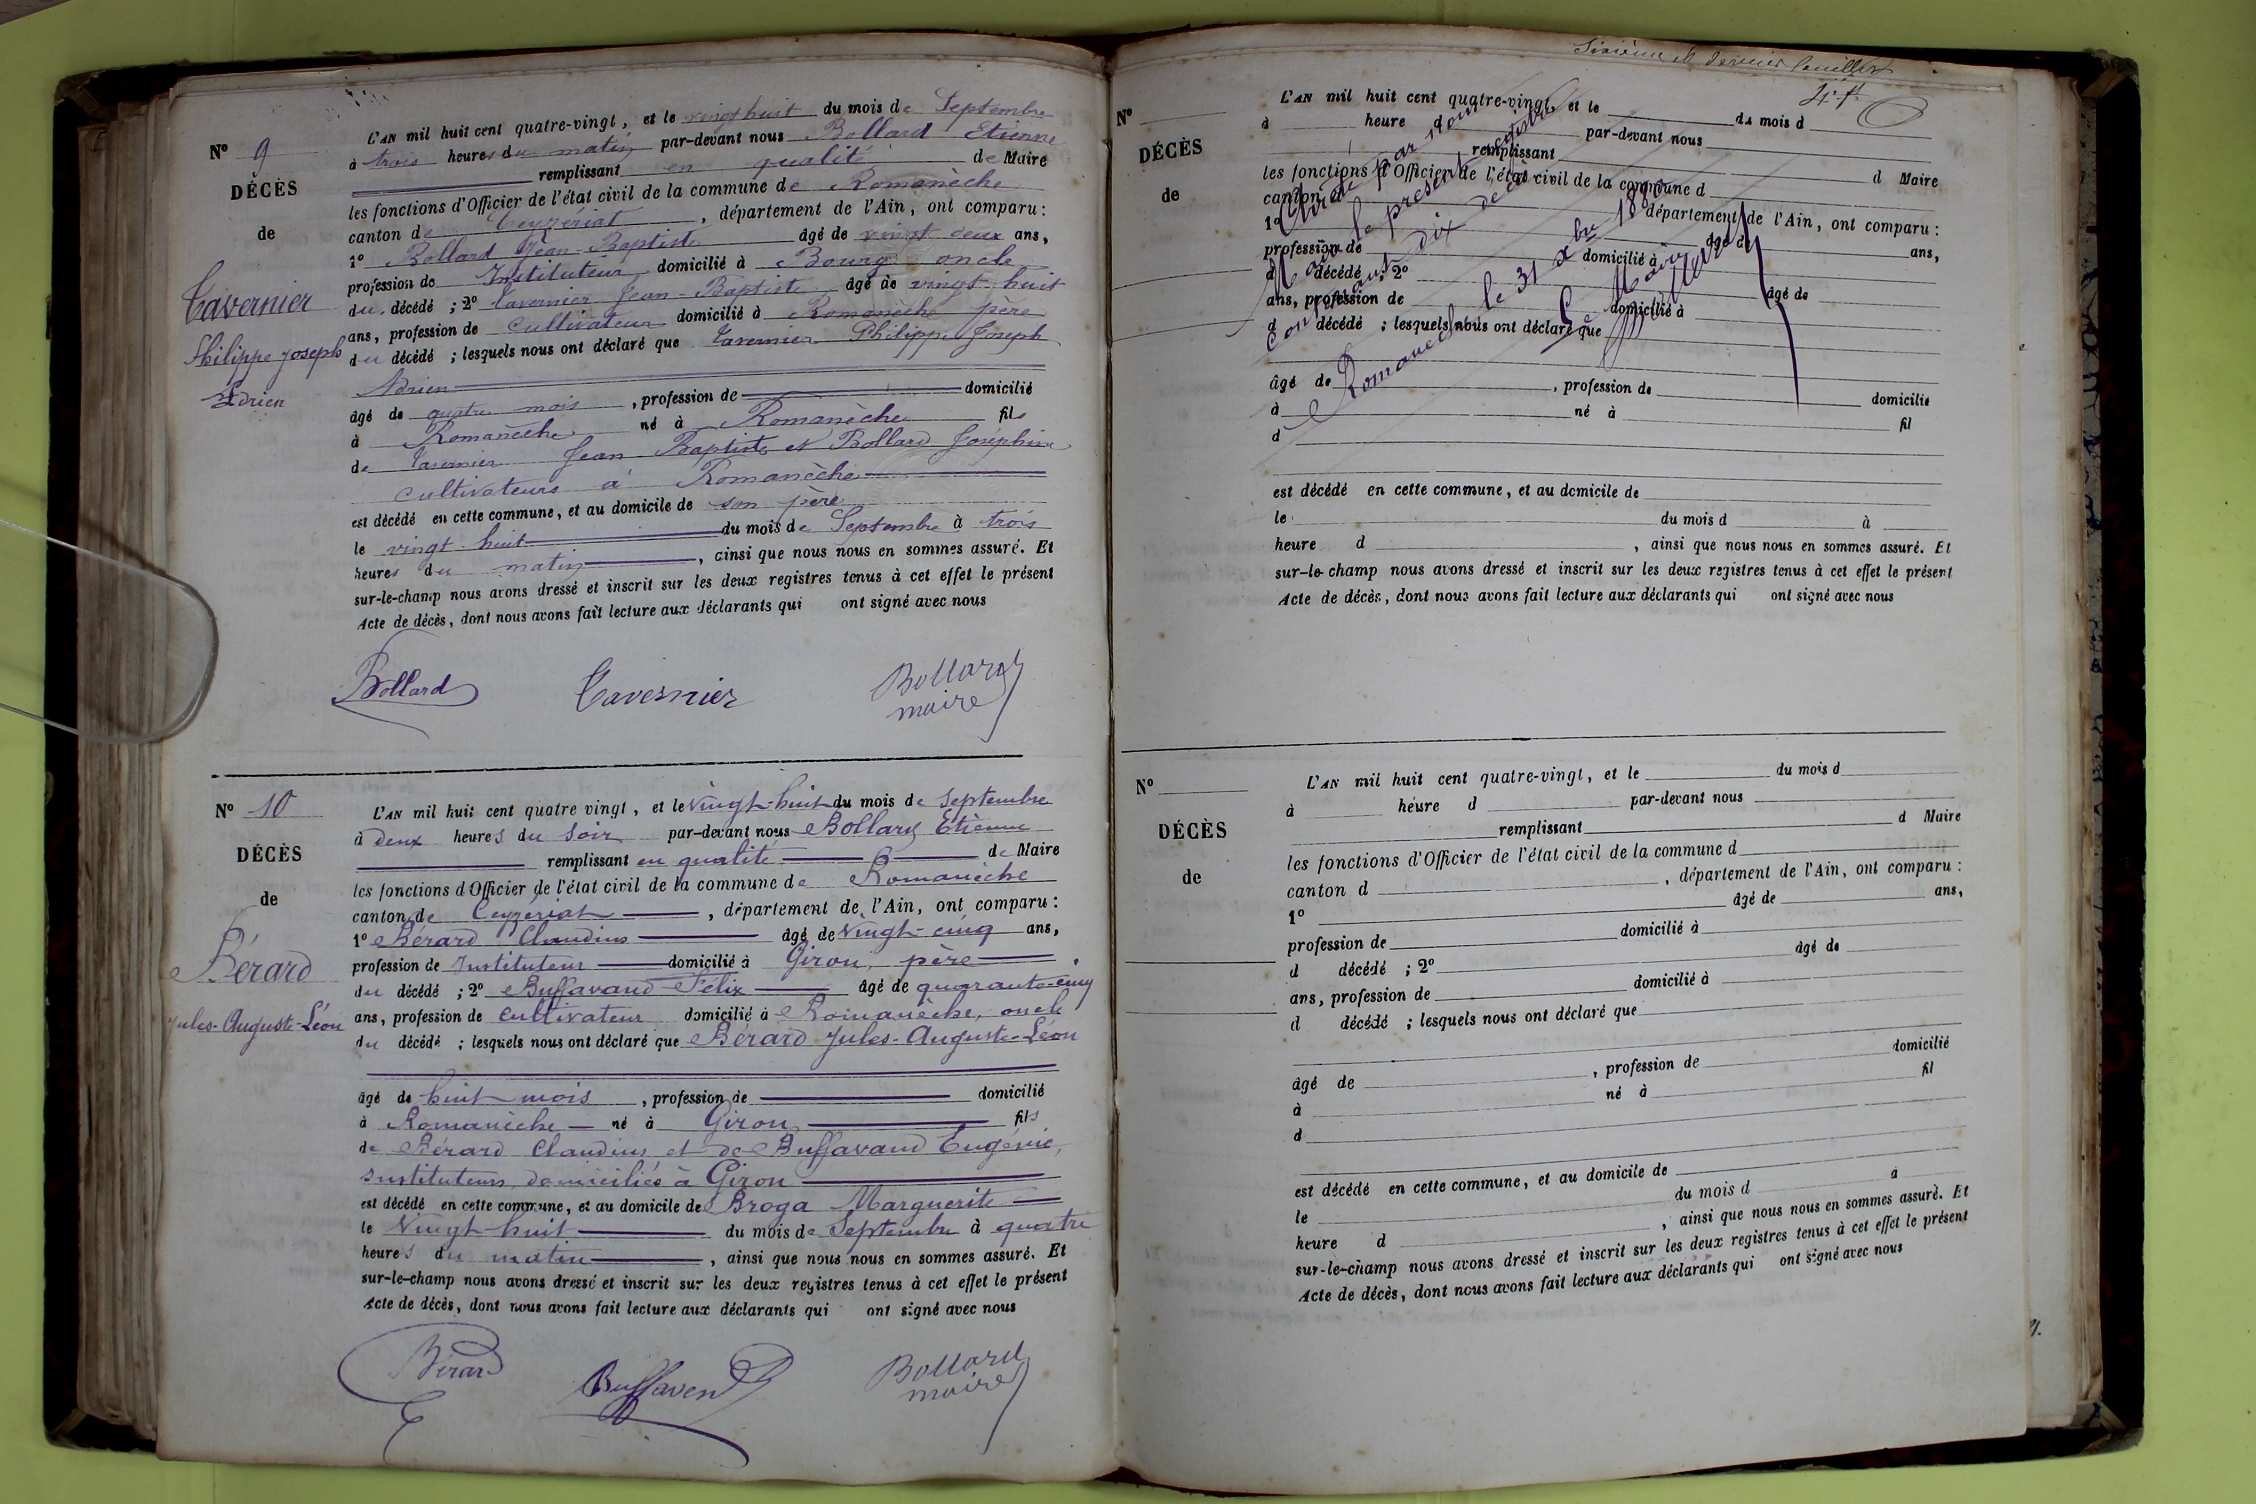 N° 9
DÉCÈS
de
Tavernier
Philippe Joseph
Adrien
L'AN mil huit cent quatre-vingt, et le vingt huit du mois de Septembre
à trois heures du matin par-devant nous Bollard Etienne
remplissant en qualité de Maire
les fonctions d'Officier de l'état civil de la commune de Romanèche
canton de Ceyzériat, département de l'Ain, ont comparu :
1° Bollard Jean-Baptiste âgé de vingt deux ans,
profession de Instituteur domicilié à Bourg oncle
du décédé ; 2° Tavernier Jean-Baptiste âgé de vingt-huit
ans, profession de Cultivateur domicilié à Romanèche père
du décédé ; lesquels nous ont déclaré que Tavernier Philippe Joseph
Adrien
âgé de quatre mois, profession de domicilié
à Romanèche né à Romanèche fils
de Tavernier Jean Baptiste et Bollard Joséphine
cultivateurs à Romanèche
est décédé en cette commune, et au domicile de son père
le vingt-huit du mois de Septembre à trois
heures du matin, ainsi que nous nous en sommes assuré. Et
sur-le-champ nous avons dressé et inscrit sur les deux registres tenus à cet effet le présent
Acte de décès, dont nous avons fait lecture aux déclarants qui ont signé avec nous
Bollard Tavernier Bollard
maire
N° 10
DÉCÈS
de
Bérard
Jules-Auguste-Léon
L'AN mil huit cent quatre vingt, et le vingt-huit du mois de Septembre
à deux heures du soir par-devant nous Bollard Etienne
remplissant en qualité de Maire
les fonctions d'Officier de l'état civil de la commune de Romanèche
canton de Ceyzériat, département de l'Ain, ont comparu :
1° Bérard Claudius âgé de vingt-cinq ans,
profession de Instituteur domicilié à Giron, père
du décédé ; 2° Buffavand Félix âgé de quarante-cinq
ans, profession de cultivateur domicilié à Romanèche, oncle
du décédé ; lesquels nous ont déclaré que Bérard Jules-Auguste-Léon
âgé de huit mois, profession de domicilié
à Romanèche né à Giron fils
de Bérard Claudius et de Buffavand Eugénie,
instituteurs domiciliés à Giron
est décédé en cette commune, et au domicile de Broga Marguerite
le vingt-huit du mois de Septembre à quatre
heures du matin, ainsi que nous nous en sommes assuré. Et
sur-le-champ nous avons dressé et inscrit sur les deux registres tenus à cet effet le présent
Acte de décès, dont nous avons fait lecture aux déclarants qui ont signé avec nous
Bérard Buffavend Bollard
maire
Sixième et dernier feuillet
N°
DÉCÈS
de
L'AN mil huit cent quatre-vingt, et le du mois d
à heure d par-devant nous
remplissant d Maire
les fonctions d'Officier de l'état civil de la commune d
canton d département de l'Ain, ont comparu :
1° âgé de ans,
profession de domicilié à
d décédé ; 2° âgé de
ans, profession de domicilié à
d décédé ; lesquels nous ont déclaré que
âgé de , profession de domicilié
à né à fil
d
est décédé en cette commune, et au domicile de
le du mois d à
heure d , ainsi que nous nous en sommes assuré. Et
sur-le-champ nous avons dressé et inscrit sur les deux registres tenus à cet effet le présent
Acte de décès, dont nous avons fait lecture aux déclarants qui ont signé avec nous
par nous
le présent registre
contenant dix décès
Romanèche le 31 Xbre 1880
Le Maire
N°
DÉCÈS
de
L'AN mil huit cent quatre-vingt, et le du mois d
à heure d par-devant nous
remplissant d Maire
les fonctions d'Officier de l'état civil de la commune d
canton d , département de l'Ain, ont comparu :
1° âgé de ans,
profession de domicilié à
d décédé ; 2° âgé de
ans, profession de domicilié à
d décédé ; lesquels nous ont déclaré que
âgé de , profession de domicilié
à né à fil
d
est décédé en cette commune, et au domicile de
le du mois d à
heure d , ainsi que nous nous en sommes assuré. Et
sur-le-champ nous avons dressé et inscrit sur les deux registres tenus à cet effet le présent
Acte de décès, dont nous avons fait lecture aux déclarants qui ont signé avec nous